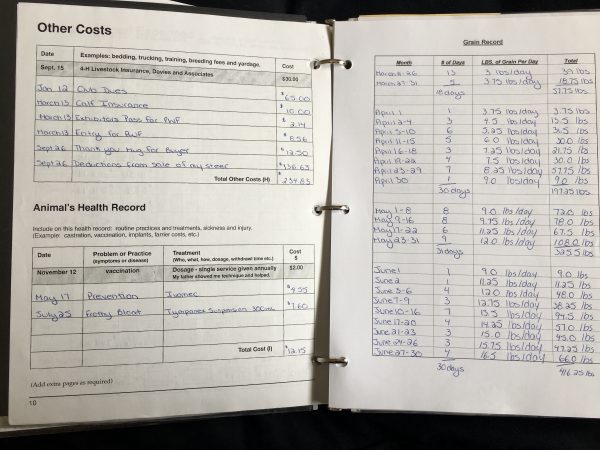 Other Costs
Date Examples: bedding, trucking, training, breeding fees and yardage. Cost
Sept. 15 4-H Livestock Insurance, Davies and Associates $30.00
Jan 12 Club Dues $65.00
March 13 Calf Insurance $10.00
March 13 Exhibitors Pass for PWF $2.14
March 13 Entry for PWF $8.56
Sept 26 Thank you Mug for Buyer $12.50
Sept 26 Deductions from sale of my steer $136.65
Total Other Costs (H) $234.85
Animal's Health Record
Include on this health record: routine practices and treatments, sickness and injury.
(Example: castration, vaccination, implants, farrier costs, etc.)
Date Problem or Practice Treatment Cost
(symptoms or disease) (Who, what, how, dosage, withdrawal time etc.) $
November 12 vaccination Dosage - single service given annually $2.00
My father showed me technique and helped.
May 17 Prevention Ivomec $4.55
July 25 Frothy Bloat Suspension 300mL $7.60
Total Cost (I) $12.15
(Add extra pages as required)
10
Grain Record
Month # of Days LBS. of Grain Per Day Total
March 26 13 3 lbs/day 39 lbs
March 27-31 5 3.75 lbs/day 18.75 lbs
18 days 57.75 lbs
April 1 1 3.75 lbs/day 3.75 lbs
April 2-4 3 4.5 lbs/day 13.5 lbs
April 5-10 6 5.25 lbs/day 31.5 lbs
April 11-15 5 6.0 lbs/day 30.0 lbs
April 16-18 3 7.25 lbs/day 21.75 lbs
April 19-22 4 7.5 lbs/day 30.0 lbs
April 23-29 7 8.25 lbs/day 57.75 lbs
April 30 1 9.0 lbs/day 9.0 lbs
30 days 197.25 lbs
May 1-8 8 9.0 lbs/day 72.0 lbs
May 9-16 8 9.75 lbs/day 78.0 lbs
May 17-22 6 11.25 lbs/day 67.5 lbs
May 23-31 9 12.0 lbs/day 108.0 lbs
31 days 325.5 lbs
June 1 1 9.0 lbs/day 9.0 lbs
June 2 1 11.25 lbs/day 11.25 lbs
June 3-6 4 12.0 lbs/day 48.0 lbs
June 7-9 3 12.75 lbs/day 38.25 lbs
June 10-16 7 13.5 lbs/day 94.5 lbs
June 17-20 4 14.25 lbs/day 57.0 lbs
June 21-23 3 15.0 lbs/day 45.0 lbs
June 24-26 3 15.75 lbs/day 47.25 lbs
June 27-30 4 16.5 lbs/day 66.0 lbs
30 days 416.25 lbs